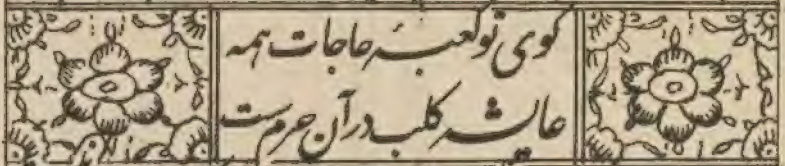 کوی تو کعبهٔ حاجات همه
عایشه کلب در آن حرم ست